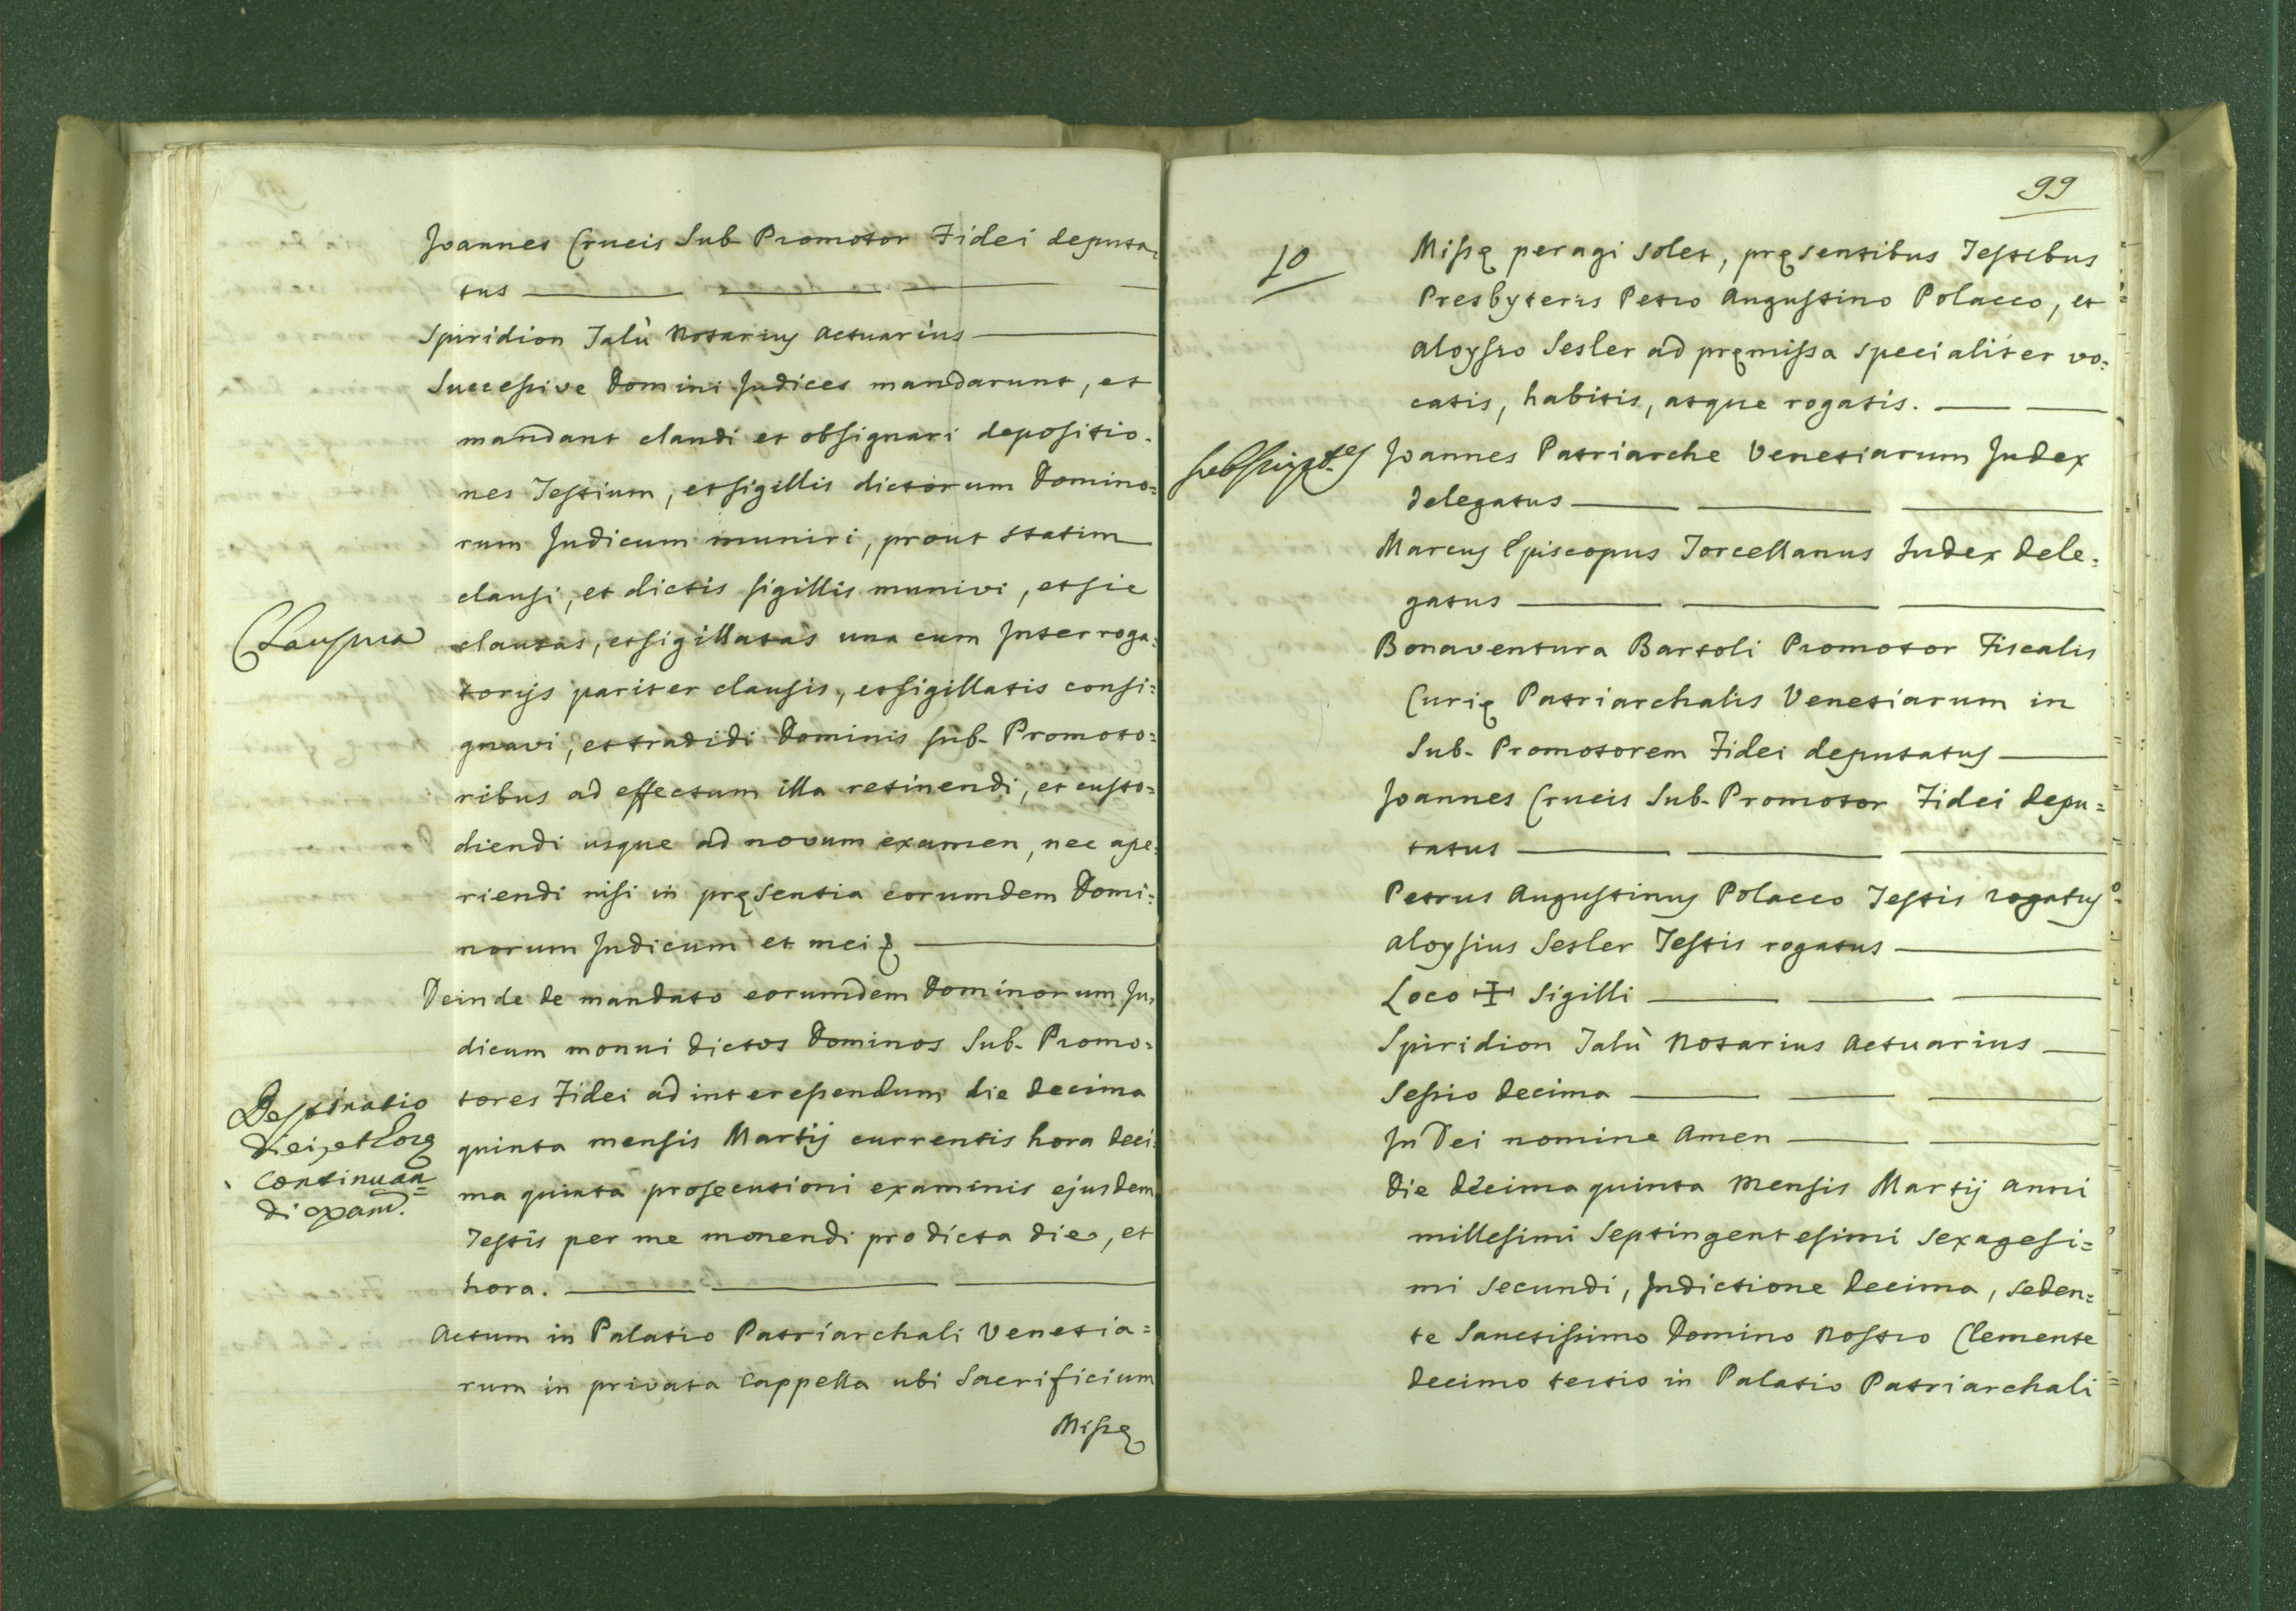 Joannes Crucis Sub-Promotor Fidei deputa-
tus
Spiridion Talù Notarius Actuarius
Successive Domini Judices mandarunt, et
mandant claudi et obsignari depositio-
nes Testium, et sigillis dictorum Domino=
rum Judicum muniri, prout statim
clausi, et dictis sigillis munivi, et sic
Clausura
clausas, et sigillatas una cum Interroga=
torijs pariter clausis, et sigillatis consi=
gnavi, et tradidi Dominis sub-Promoto=
ribus ad effectum illa retinendi, et custo=
diendi usque ad novum examen, nec ape=
riendi nisi in pręsentia eorumdem Domi=
norum Judicum et mei
Deinde de mandato eorumdem Dominorum Ju=
dicum monui dictos Dominos Sub-Promo=
Destinatio
diei, et horę
continuan=
di exam.
tores Fidei ad interessendum die decima
quinta mensis Martij currentis hora deci=
ma quinta prosecutioni examinis ejusdem
Testis per me monendi pro dicta die, et
hora.
Actum in Palatio Patriarchali Venetia=
rum in privata Cappella ubi Sacrificium
Missę
99
10
Missę peragi solet, pręsentibus Testibus
Presbyteris Petro Augustino Polacco, et
Aloysio Sesler ad pręmissa specialiter vo=
catis, habitis, atque rogatis.
Joannes Patriarche Venetiarum Judex
delegatus
Marcus Episcopus Torcellanus Judex dele=
gatus
Bonaventura Bartoli Promotor Fiscalis
Curię Patriarchalis Venetiarum in
Sub-Promotorem Fidei deputatus
Joannes Crucis Sub-Promotor Fidei depu=
tatus
Petrus Augustinus Polacco Testis rogatus
Aloysius Sesler Testis rogatus
Loco ✠ Sigilli
Spiridion Talù Notarius Actuarius
Sessio decima
In Dei nomine Amen
Die decima quinta Mensis Martij anni
millesimi septingentesimi sexagesi=
mi secundi, Indictione decima, seden=
te Sanctissimo Domino Nostro Clemente
decimo tertio in Palatio Patriarchali